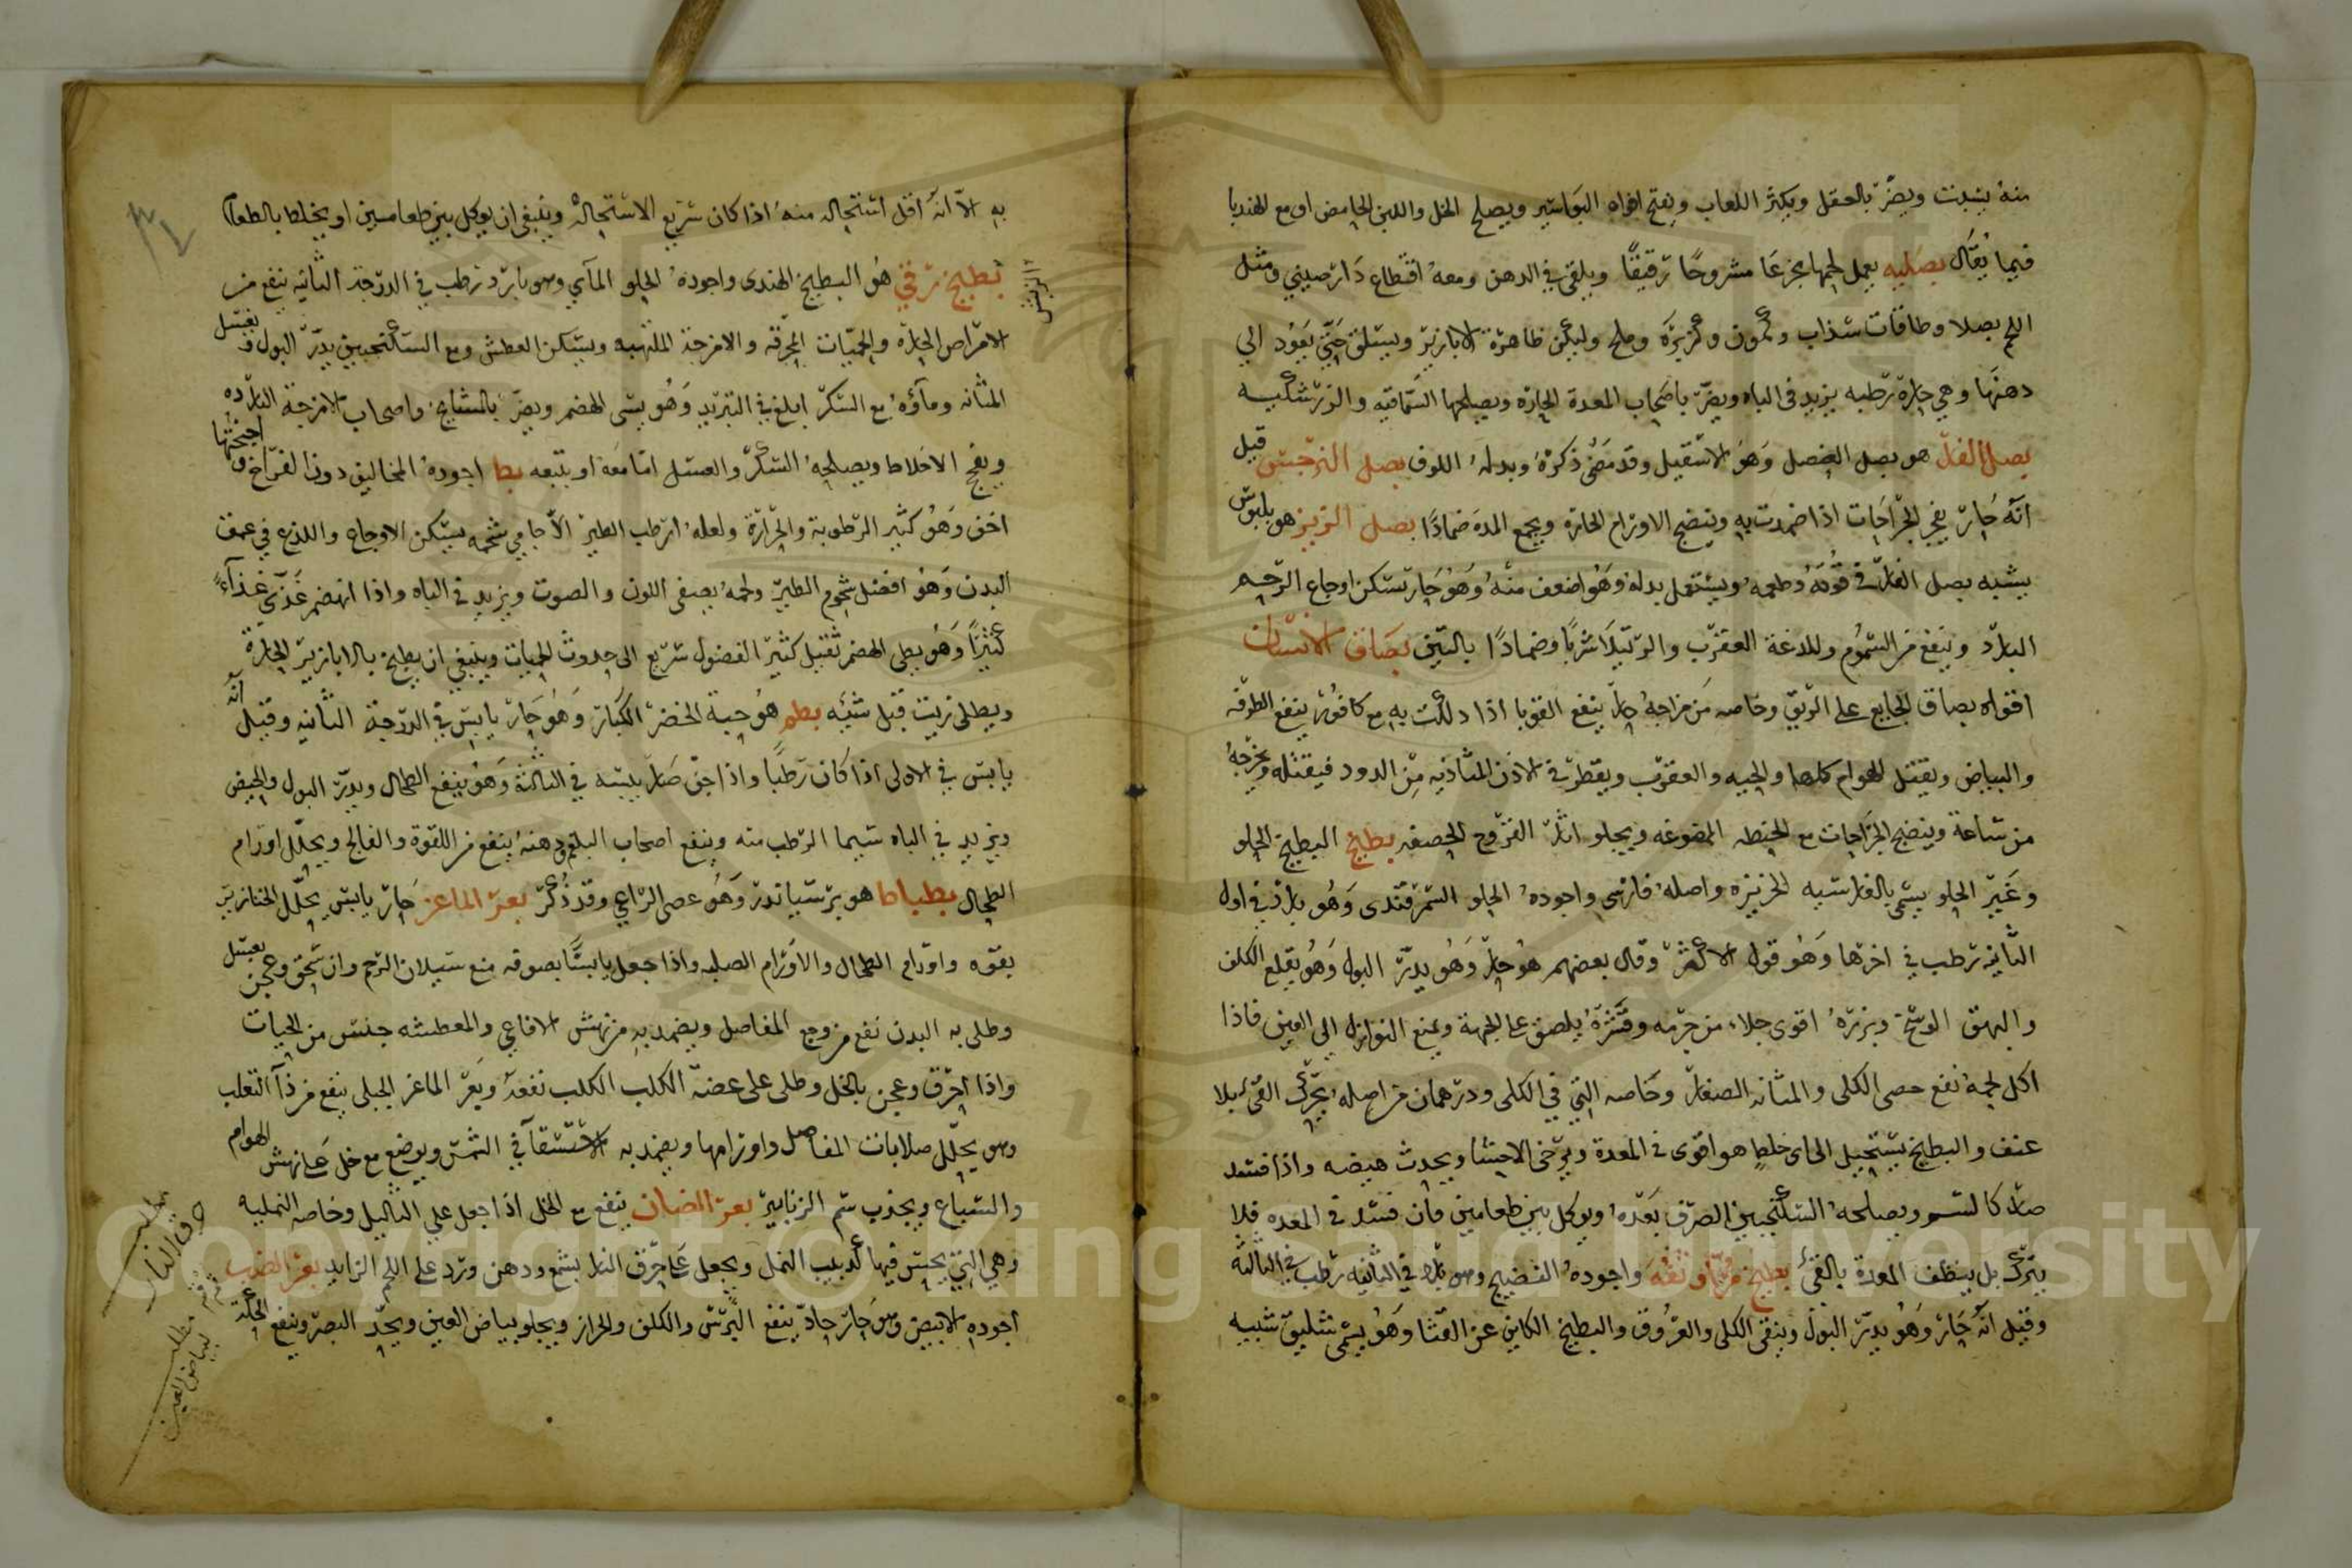 منه يسبت ويضر بالعقل ويكثر اللعاب ويفتح افواه البواسير ويصلح الخل واللبن الحامض او مع الهندبا
فيما يقال بصليه يعمل لحمها مجزعا مشروحا رقيقا ويلقى في الدهن ومعه اقطاع دارصيني ومثل
اللحم بصلا وطاقات سذاب وكمون وكزبرة وملح وليكن ظاهرة الابازير ويسلق حتى يعود الى
دهنها وهي حارة رطبه يزيد في الباه ويضر باصحاب المعدة الحارة ويصلحها السماقيه والزرشكيه
بصل الفار هو بصل العنصل وهو الاسقيل وقد مضى ذكره وبدله اللوف بصل النرجس قيل
انه حار يفجر الجراحات اذا ضمدت به وينضج الاورام الحارة ويجمع المدة ضمادا بصل الزيز هو بلبوس
يشبه بصل الفار في قوته وطعمه ويستعمل بدله وهو اضعف منه وهو حار تسكن اوجاع الرحم
البارد وينفع من السموم وللدغة العقرب والرتيلا شربا وضمادا بالتين بصاق الانسان
اقواه بصاق الجايع على الريق وخاصه من مزاجه حار ينفع القوبا اذا دلكت به مع كافور ينفع الطرفه
والبياض ويقتل الهوام كلها والحيه والعقرب ويقطر في الاذن المتاذيه من الدود فيقتله ويخرجه
من ساعة وينضج الجراحات مع الحنطه الممضوغه ويجلو اثار القروح الحصف بطيخ البطيخ الحلو
وغير الحلو يسمى بالفارسيه الخربزه واصله فارسي واجوده الحلو السمرقندى وهو بارد في اول
الثانيه رطب في اخرها وهو قول الاكثر وقال بعضهم هو حار وهو يدر البول وهو يقلع الكلف
والبهق الوسخ وبزره اقوى جلاء من جرمه وقشره يلصق على الجبهة ويمنع النوازل الى العين فاذا
اكل لحمه نفع حصى الكلى والمثانه الصغار وخاصه التي في الكلى ودرهمان من اصله يحرك القئ بلا
عنف والبطيخ يستحيل الى اى خلط هو اقوى في المعدة ويرخى الاحشا ويحدث هيضه واذا فسد
صار كالسم ويصلحه السكنجبين الصرف بعده ويوكل بين طعامين فان فسد في المعده فلا
يترك بل ينظف المعدة بالقئ بطيخ واجوده النضيج وهو بارد في الثانيه رطب في الثالثه
وقيل انه حار وهو يدر البول وينقى الكلى والعروق والبطيخ الكاين عن القثا وهو يسمى شليق شبيه
٣٤
به الا انه اقل استحاله منه اذا كان سريع الاستحالة وينبغى ان يوكل بين طعامين او يخلط بالطعام
بطيخ رقي هو البطيخ الهندى واجوده الحلو المآي وهو بارد رطب في الدرجة الثانيه ينفع من
الامراض الحارة والحميات المحرقه والامزجة الملتهبه ويسكن العطش ومع السكنجبين يدر البول ويغسل
المثانه وماؤه مع السكر ابلغ في التبريد وهو يسى الهضم ويضر بالمشايخ واصحاب الامزجة البارده
ويفج الاخلاط ويصلحه السكر والعسل اما معه او يتبعه بط اجوده المخاليف دون الفراخ واجنحتها
اخف وهو كثير الرطوبة والحرارة ولعله ارطب الطير الاجامي شحمه يسكن الاوجاع واللذع في عمق
البدن وهو افضل شحوم الطير ولحمه يصفى اللون والصوت ويزيد في الباه واذا انهضم غذى غذآء
كثيرا وهو بطى الهضم ثقيل كثير الفضول سريع الى حدوث الحميات وينبغي ان يطبخ بالابازير الحارة
ويطلى بزيت قبل شيه بطم هو حبة الخضرا الكبار وهو حار يابس في الدرجة الثانيه وقيل انه
يابس في الاولى اذا كان رطبا واذا جف صار يبسه في الثالثة وهو ينفع الطحال ويدر البول والحيض
ويزيد في الباه سيما الرطب منه وينفع اصحاب البلغم ودهنه ينفع من اللقوة والفالج ويحلل اورام
الطحال بطباط هو برسياندر وهو عصى الراعي وقد ذكر بعر الماعز حار يابس يحلل الخنازير
بقوه واورام الطحال والاورام الصلبه واذا جعل يابسا بصوفه منع سيلان الرحم وان سحق وعجن بعسل
وطلى به البدن نفع من وجع المفاصل ويضمد به من نهش الافاعي والمعطشه جنس من الحيات
واذا احرق وعجن بالخل وطلى على عضة الكلب الكلب نفعه وبعر الماعز الجبلى ينفع من دآ الثعلب
وهو يحلل صلابات المفاصل واورامها ويضمد به الاستسقآ في الشمس ويوضع مع خل على نهش الهوام
والسباع ويجذب سم الزنابير بعر الضان ينفع مع الخل اذا جعل على الثاليل وخاصه النمليه
وهي التي يحس فيها كدبيب النمل ويجعل على حرق النار بشمع ودهن ورد على اللحم الزايد بعر الضب
اجوده الابيض وهو حار حاد ينفع البرش والكلف والحزاز ويجلو بياض العين ويحد البصر وينفع الحكة
مطلب
حرق النار
مطلب
لبياض العين
Copyright © King Saud University